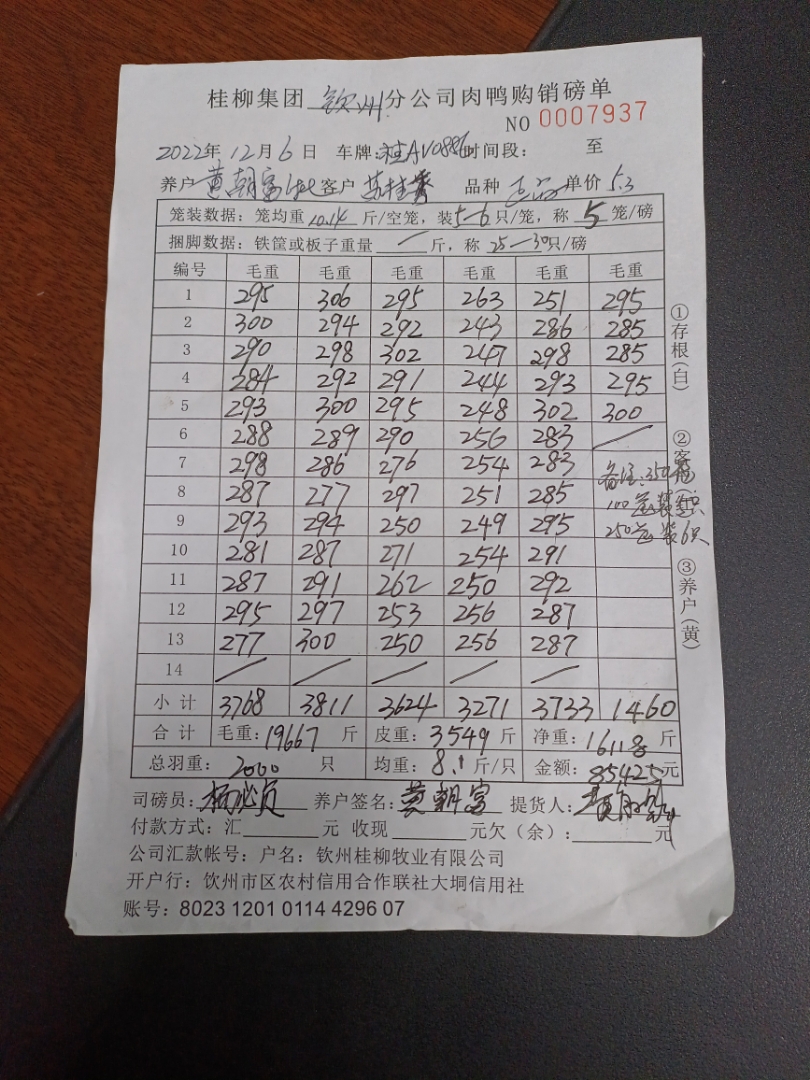 桂柳集团 钦州 分公司肉鸭购销磅单
NO 0007937
2022年 12月 6日 车牌:桂AV0886 时间段: 至
养户 黄朝富 客户 苏桂 品种 单价 5.3
笼装数据: 笼均重 10.14 斤/空笼, 装5-6只/笼, 称 5 笼/磅
捆脚数据: 铁筐或板子重量 — 斤, 称 25-30只/磅
编号 毛重 毛重 毛重 毛重 毛重 毛重
1 295 306 295 263 251 295
2 300 294 292 243 286 285
3 290 298 302 247 298 285
4 284 292 291 244 293 295
5 293 300 295 248 302 300
6 288 289 290 256 283 /
7 298 286 276 254 283
8 287 277 297 251 285
9 293 294 250 249 295
10 281 287 271 254 291
11 287 291 262 250 292
12 295 297 253 256 287
13 277 300 250 256 287
14 / / / / /
备注:350笼
100笼装5只
250笼装6只
小计 3768 3811 3624 3271 3733 1460
合计 毛重: 19667 斤 皮重: 3549 斤 净重: 16118 斤
总羽重: 2000 只 均重: 8.1 斤/只 金额: 85425元
司磅员: 养户签名: 黄朝富 提货人:
付款方式: 汇 元 收现 元欠(余): 元
公司汇款帐号: 户名: 钦州桂柳牧业有限公司
开户行: 饮州市区农村信用合作联社大垌信用社
账号: 8023 1201 0114 4296 07
①存根(白)
②客
③养户(黄)